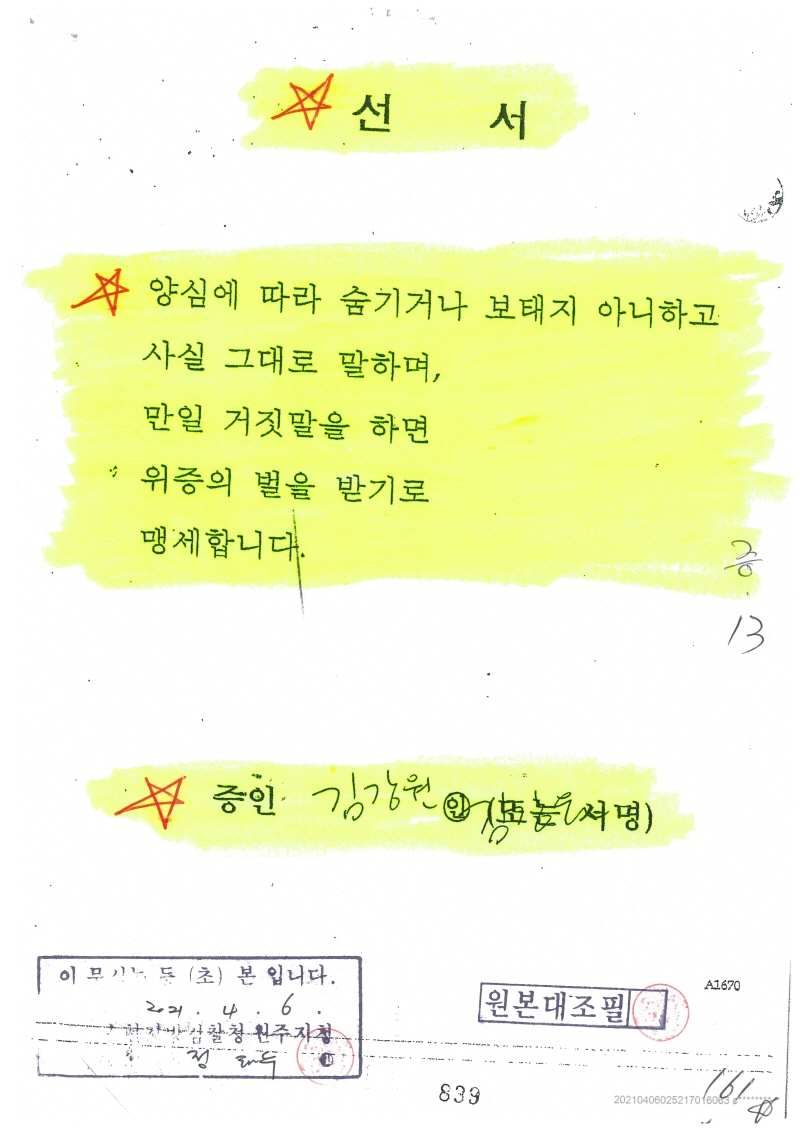 선 서
양심에 따라 숨기거나 보태지 아니하고
사실 그대로 말하며,
만일 거짓말을 하면
위증의 벌을 받기로
맹세합니다.
증
13
증인 김강원 인 (또는 서명)
이 등 (초) 본 입니다.
2021. 4. 6.
검찰청 원주지청
원본대조필
A1670
839
161
20210406025217016063